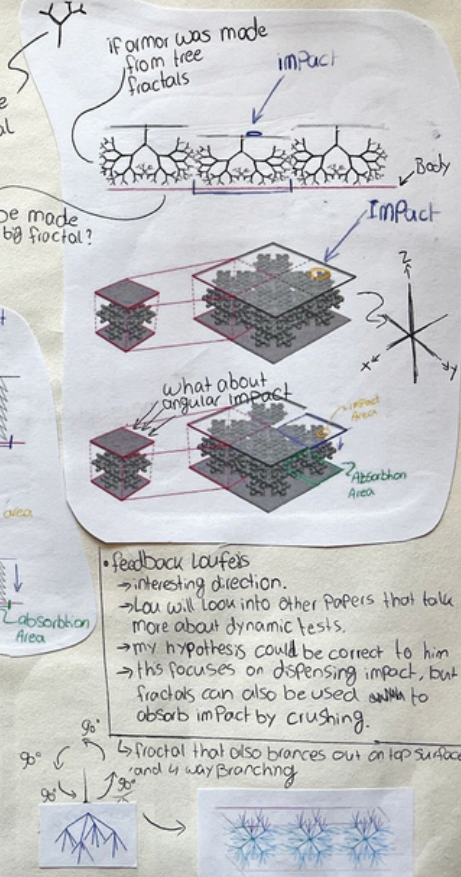 if armor was made
from tree
fractals
impact
al
Body
be made
big fractal?
Impact
Z
X
y
what about
angular impact
impact
Area
Absorbtion
Area
area
absorbtion
Area
• feedback Loufers
→ interesting direction.
→ Lou will look into other Papers that talk
more about dynamic tests.
→ my hypothesis could be correct to him
→ ths focuses on dispensing impact, but
fractals can also be used to
absorb impact by crushing.
↳ fractal that also brances out on top surface
and 4 way Branching
90°
90°
90°
90°